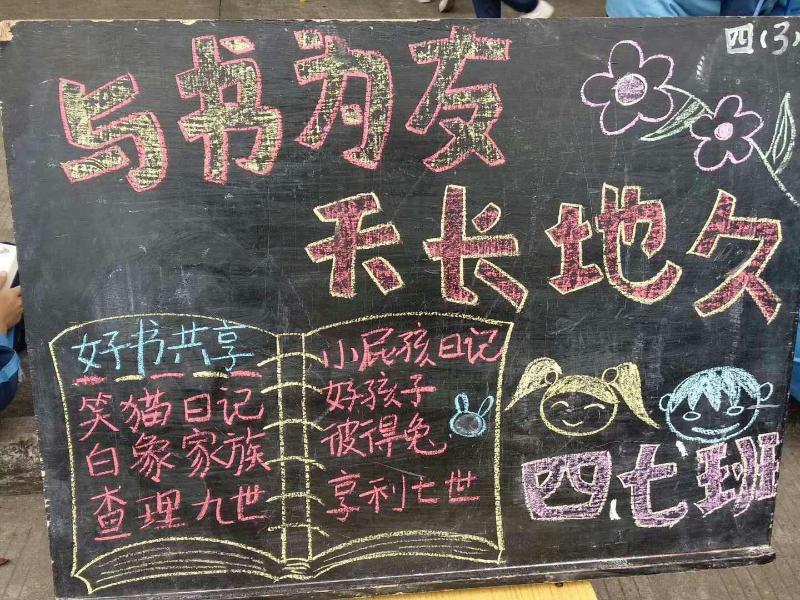 四(3)
与书为友
天长地久
好书共享
笑猫日记
白象家族
查理九世
小屁孩日记
好孩子
彼得兔
亨利七世
四、七班